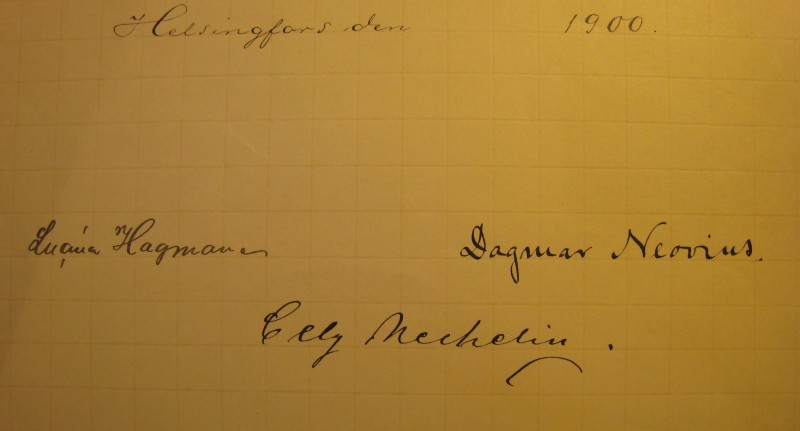 Helsingfors den 1900.
Lucina Hagman Dagmar Neovius.
Cely Mechelin.